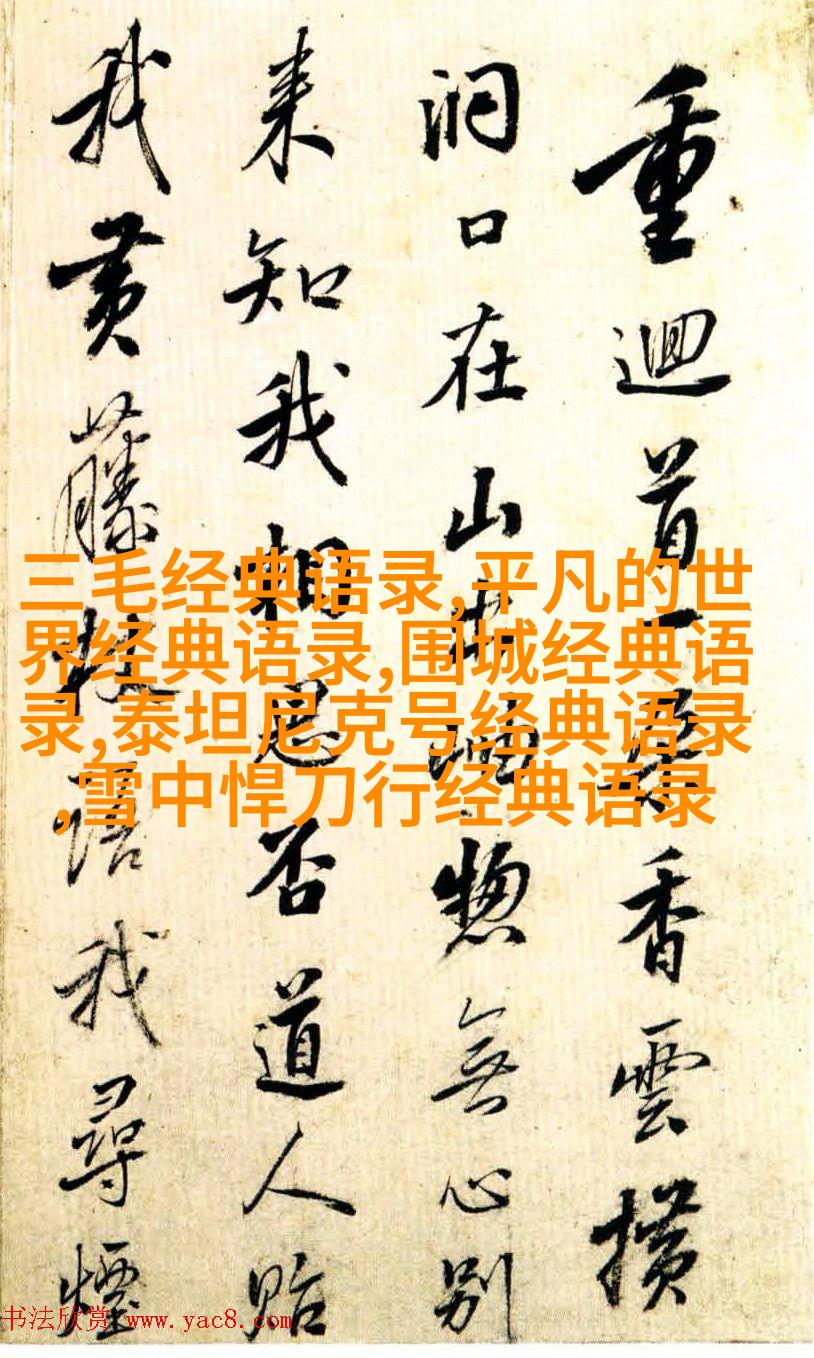 重迴首一香雲
洞口在山惣無心別
来知我相思否道人貽
我黄藤杖我尋煙
三毛经典语录,平凡的世
界经典语录,围城经典语
录,泰坦尼克号经典语录
,雪中悍刀行经典语录
书法欣赏 www.yac8.com